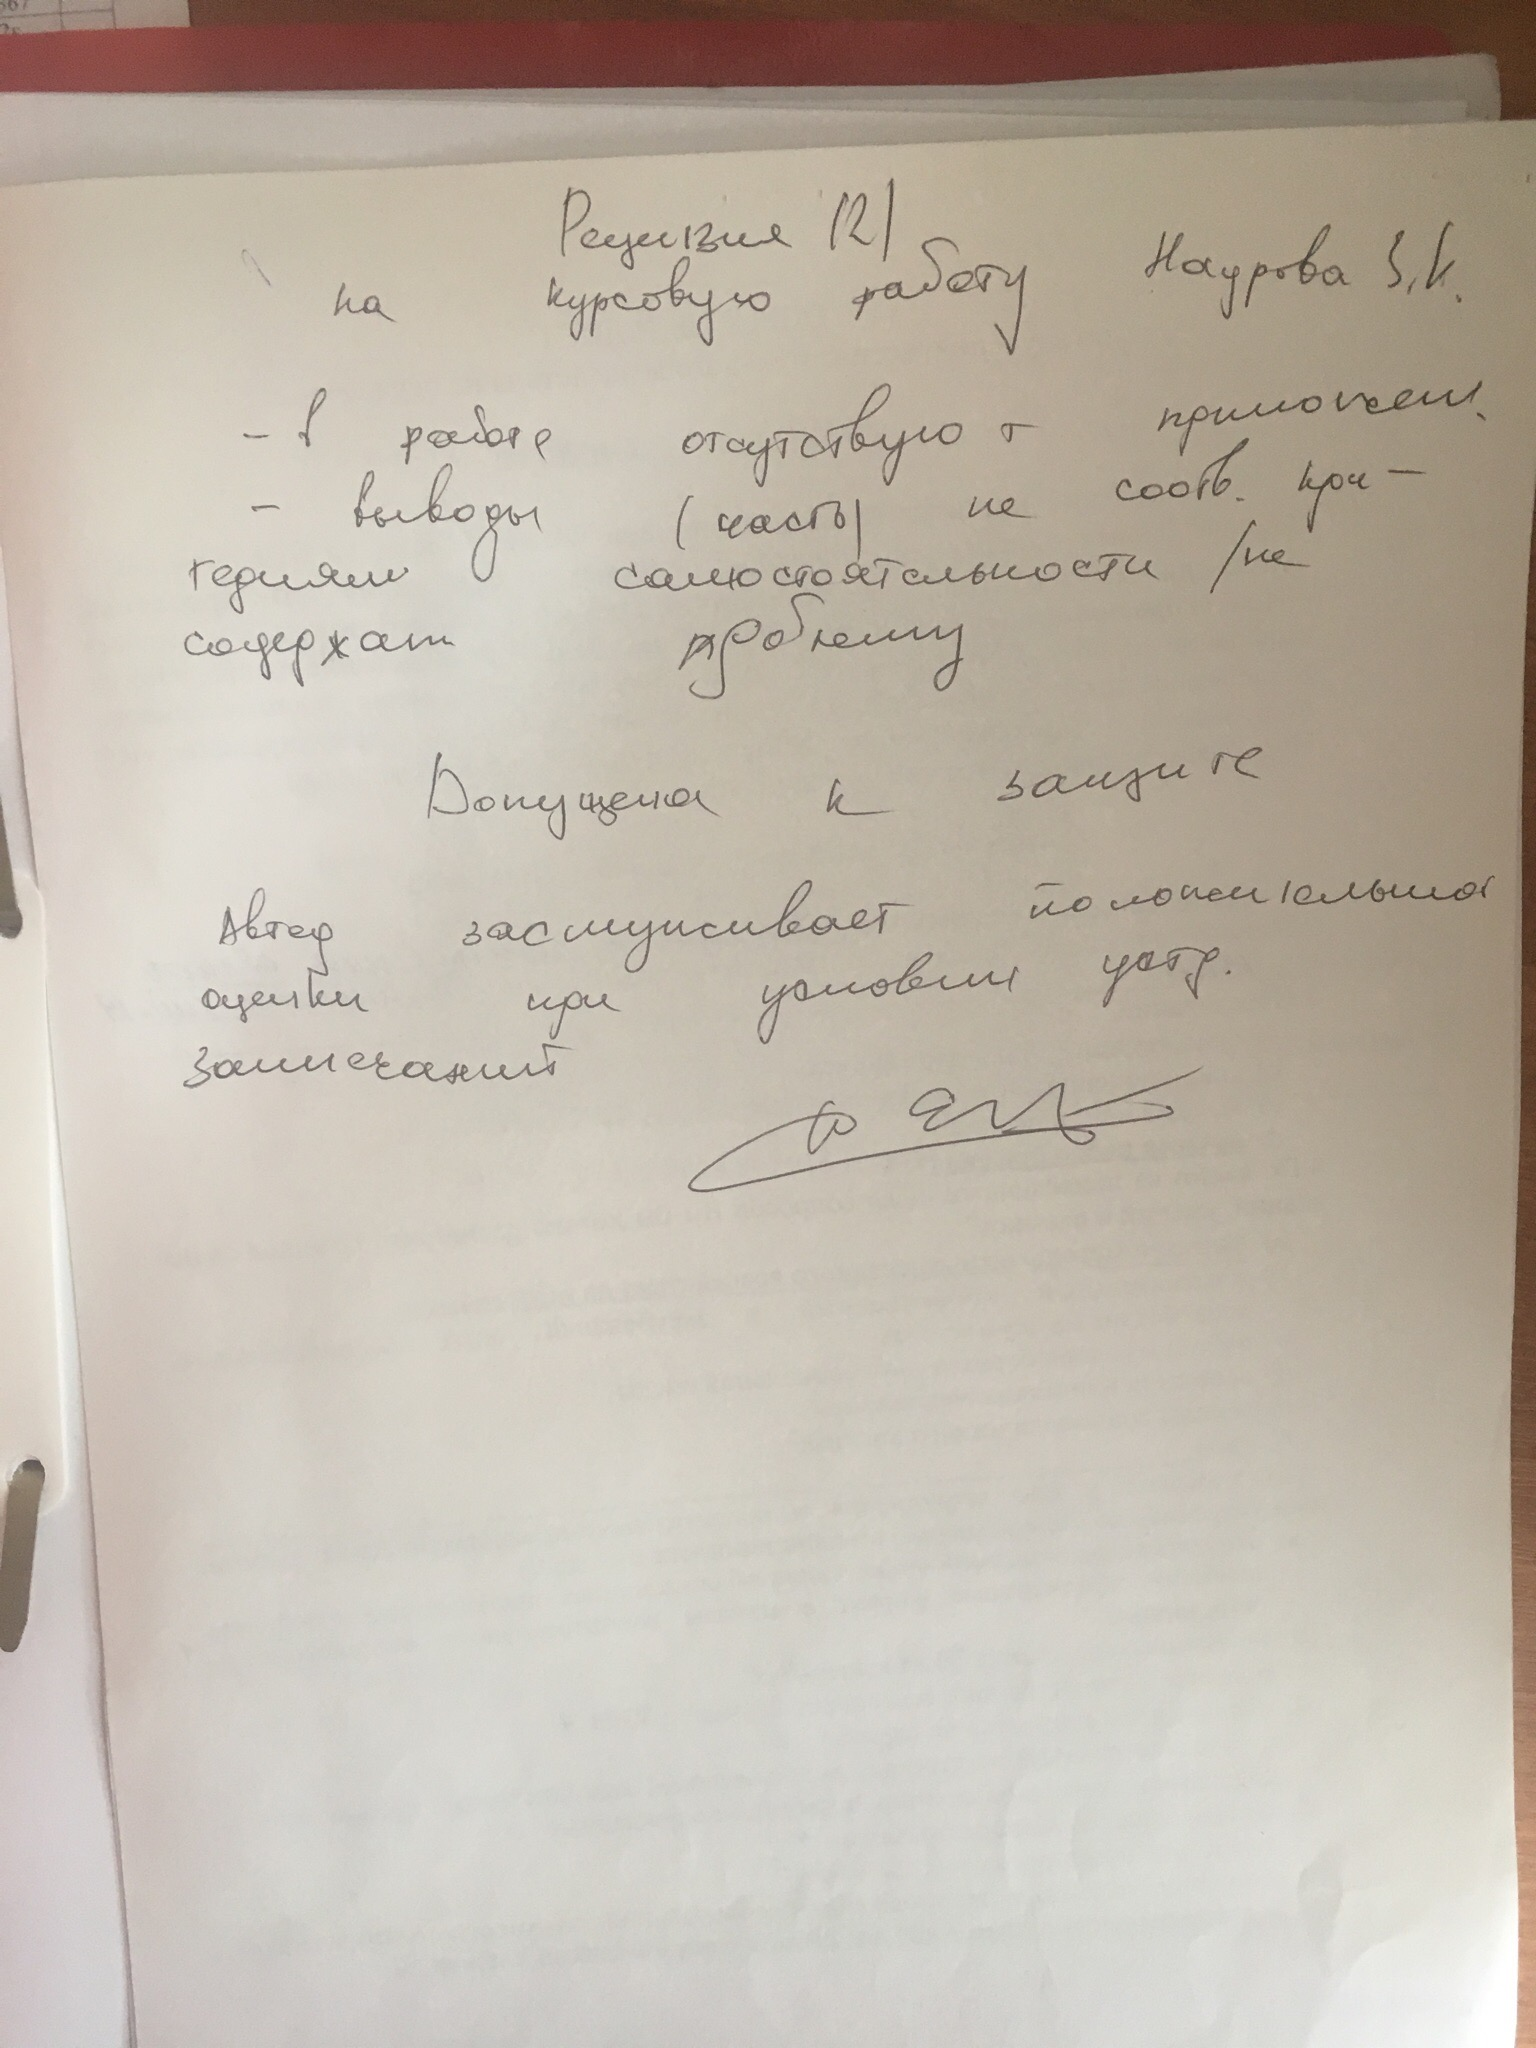 Рецензия (2)
на курсовую работу Наурова З.К.
- в работе отсутствуют приложен.
- выводы (часть) не соотв. кри-
териям самостоятельности /не
содержат проблему
Допущена к защите
Автор заслуживает положительной
оценки при условии устр.
замечаний